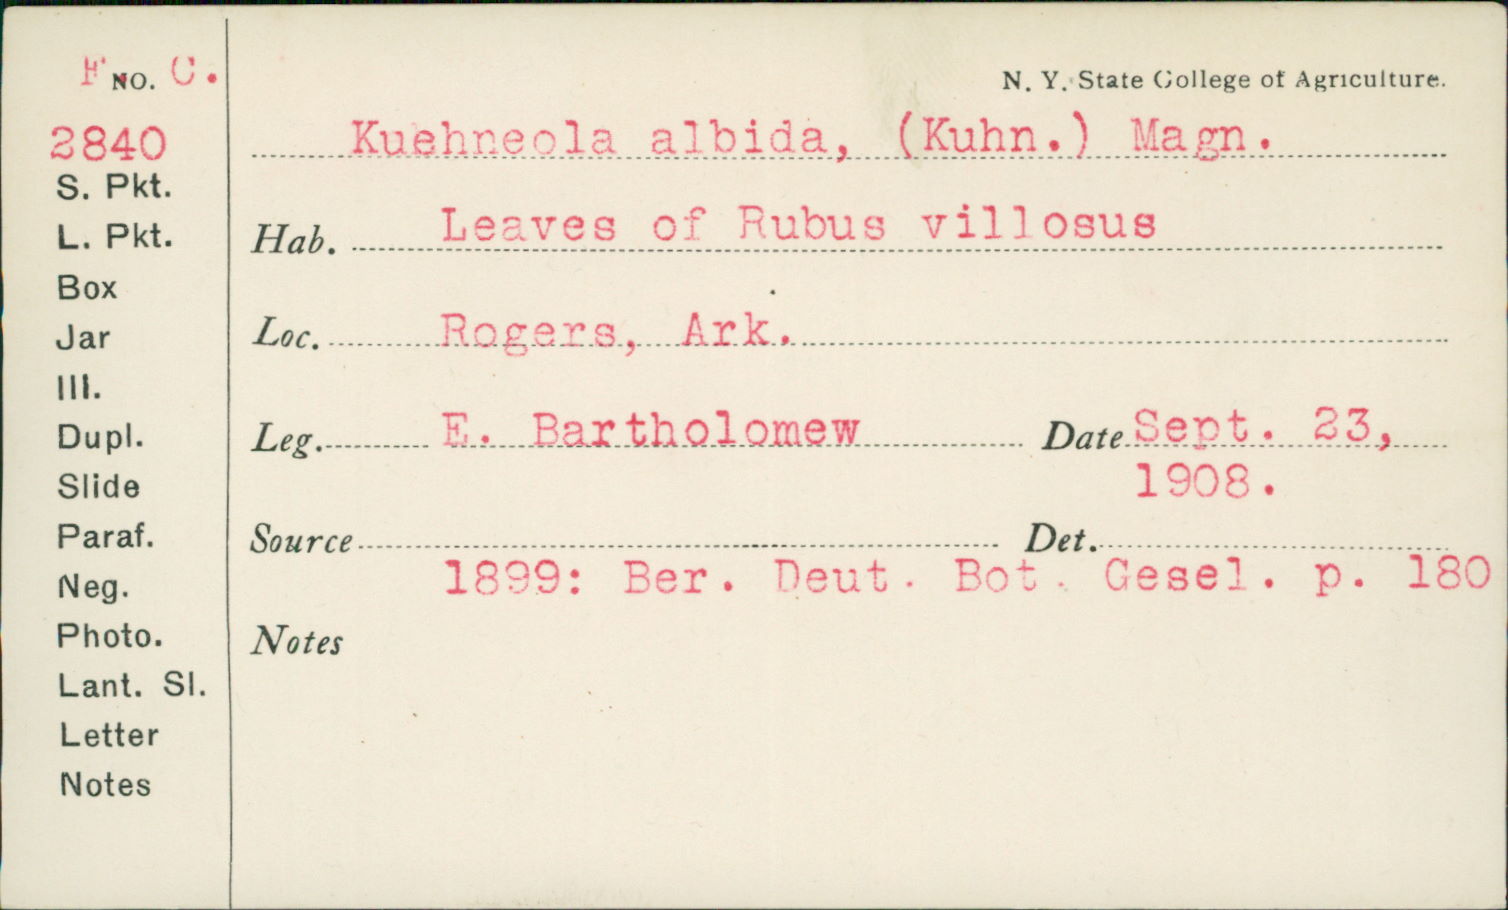 F NO. C.
2840
S. Pkt.
L. Pkt.
Box
Jar
Ill.
Dupl.
Slide
Paraf.
Neg.
Photo.
Lant. Sl.
Letter
Notes
N. Y. State College of Agriculture.
Kuehneola albida, (Kuhn.) Magn.
Hab. Leaves of Rubus villosus
Loc. Rogers, Ark.
Leg. E. Bartholomew Date Sept. 23,
1908.
Source Det.
1899: Ber. Deut. Bot. Gesel. p. 180
Notes